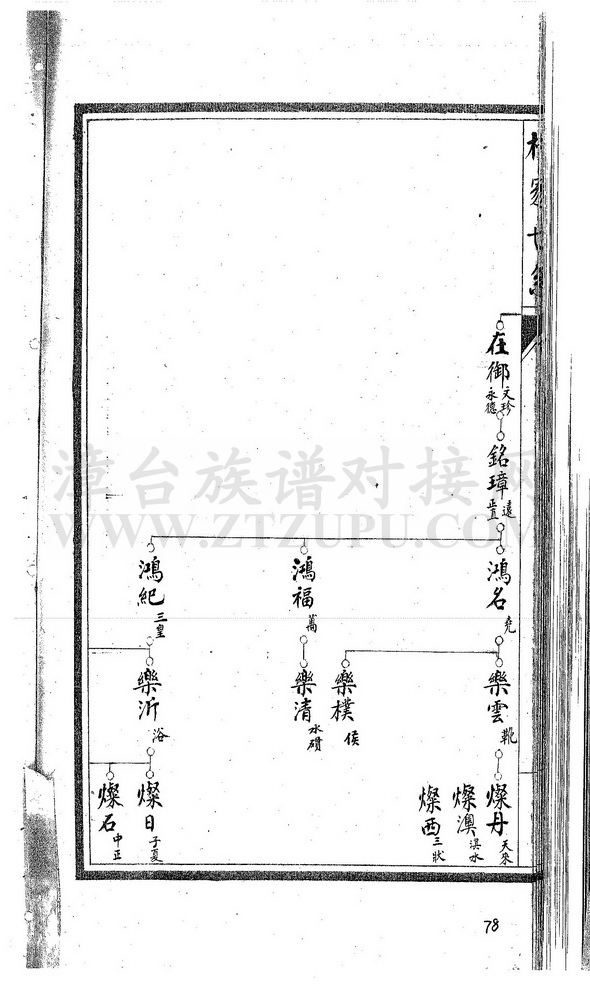 在御 文珍 永德
銘璋 遠
鴻名 堯
鴻福 萬
鴻紀 三皇
樂雲 靴
樂樸 侯
樂清 水磧
樂沂 浴
燦丹 天來
燦澳 淇水
燦西 三狀
燦日 子夏
燦石 中正
漳台族谱对接网
WWW.ZTZUPU.COM
78